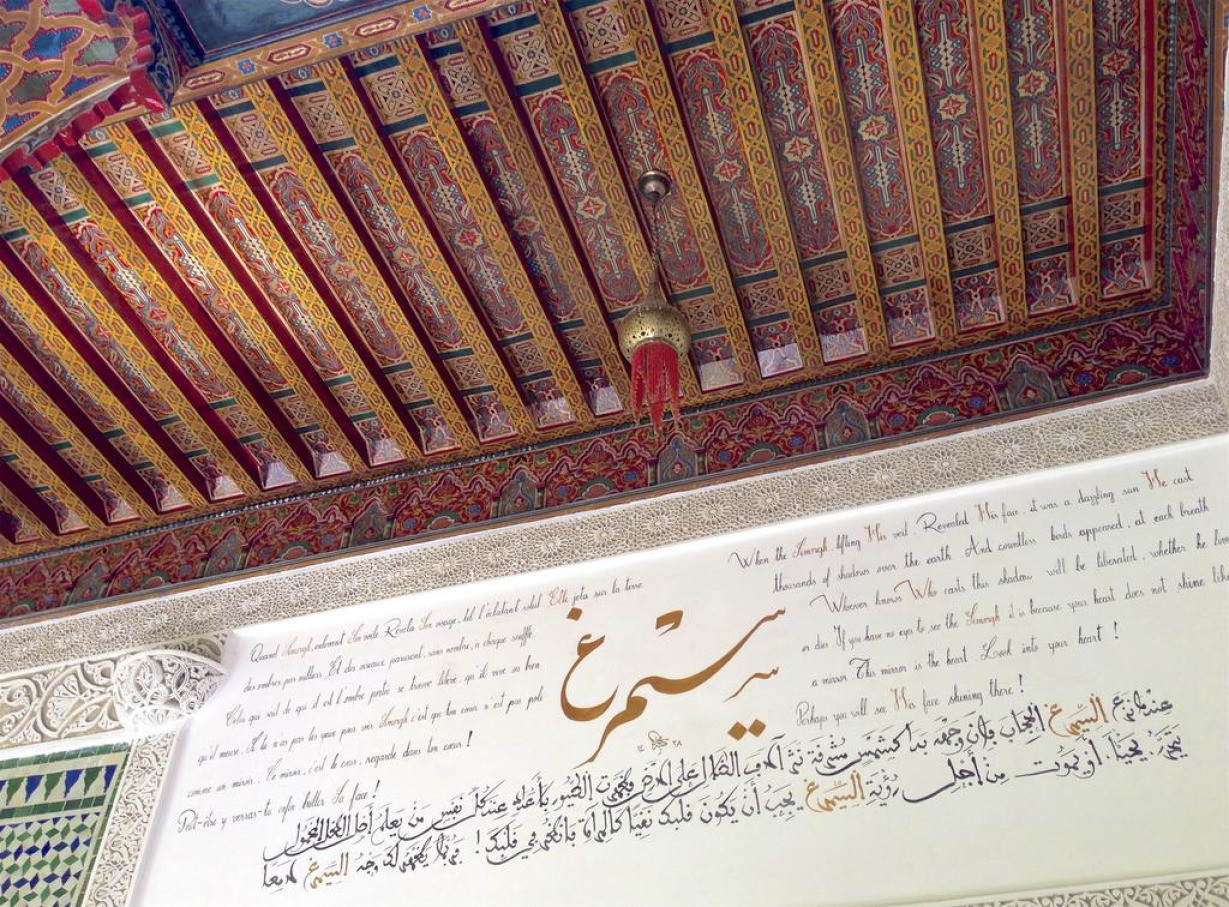 Quand Simorgh, enlevant Son voile Révéla Son visage, tel l'éclatant soleil. Elle jeta sur la terre
des ombres par milliers. Et des oiseaux parurent, sans nombre, à chaque souffle.
Celui qui sait de qui il est l'ombre portée se trouve libéré, qu'il vive ou bien
qu'il meure. Si tu n'as pas les yeux pour voir Simorgh c'est que ton cœur n'est pas poli
comme un miroir. Ce miroir, c'est le cœur, regarde dans ton cœur !
Peut-être y verras-tu enfin briller Sa face !
سيمرغ
When the Simorgh, lifting His veil, Revealed His face, it was a dazzling sun He cast
thousands of shadows over the earth And countless birds appeared, at each breath
Whoever knows Who casts this shadow will be liberated, whether he lives
or dies If you have no eyes to see the Simorgh it is because your heart does not shine like
a mirror This mirror is the heart. Look into your heart !
Perhaps you will see His face shining there !
عندما نزع السيمرغ الحجاب فإن وجهه بدا كشمس مشرقة نثر آلاف الظلال على الأرض فظهرت الطيور بأعداد عند كل نفس من يعلم أصل الظل المحمول
يتحرر يحيا، أو يموت من أجل رؤية السيمرغ يجب أن يكون قلبك نقيا كالمرآة فانظر في قلبك ! فربما يظهر لك وجه السيمرغ لامعا